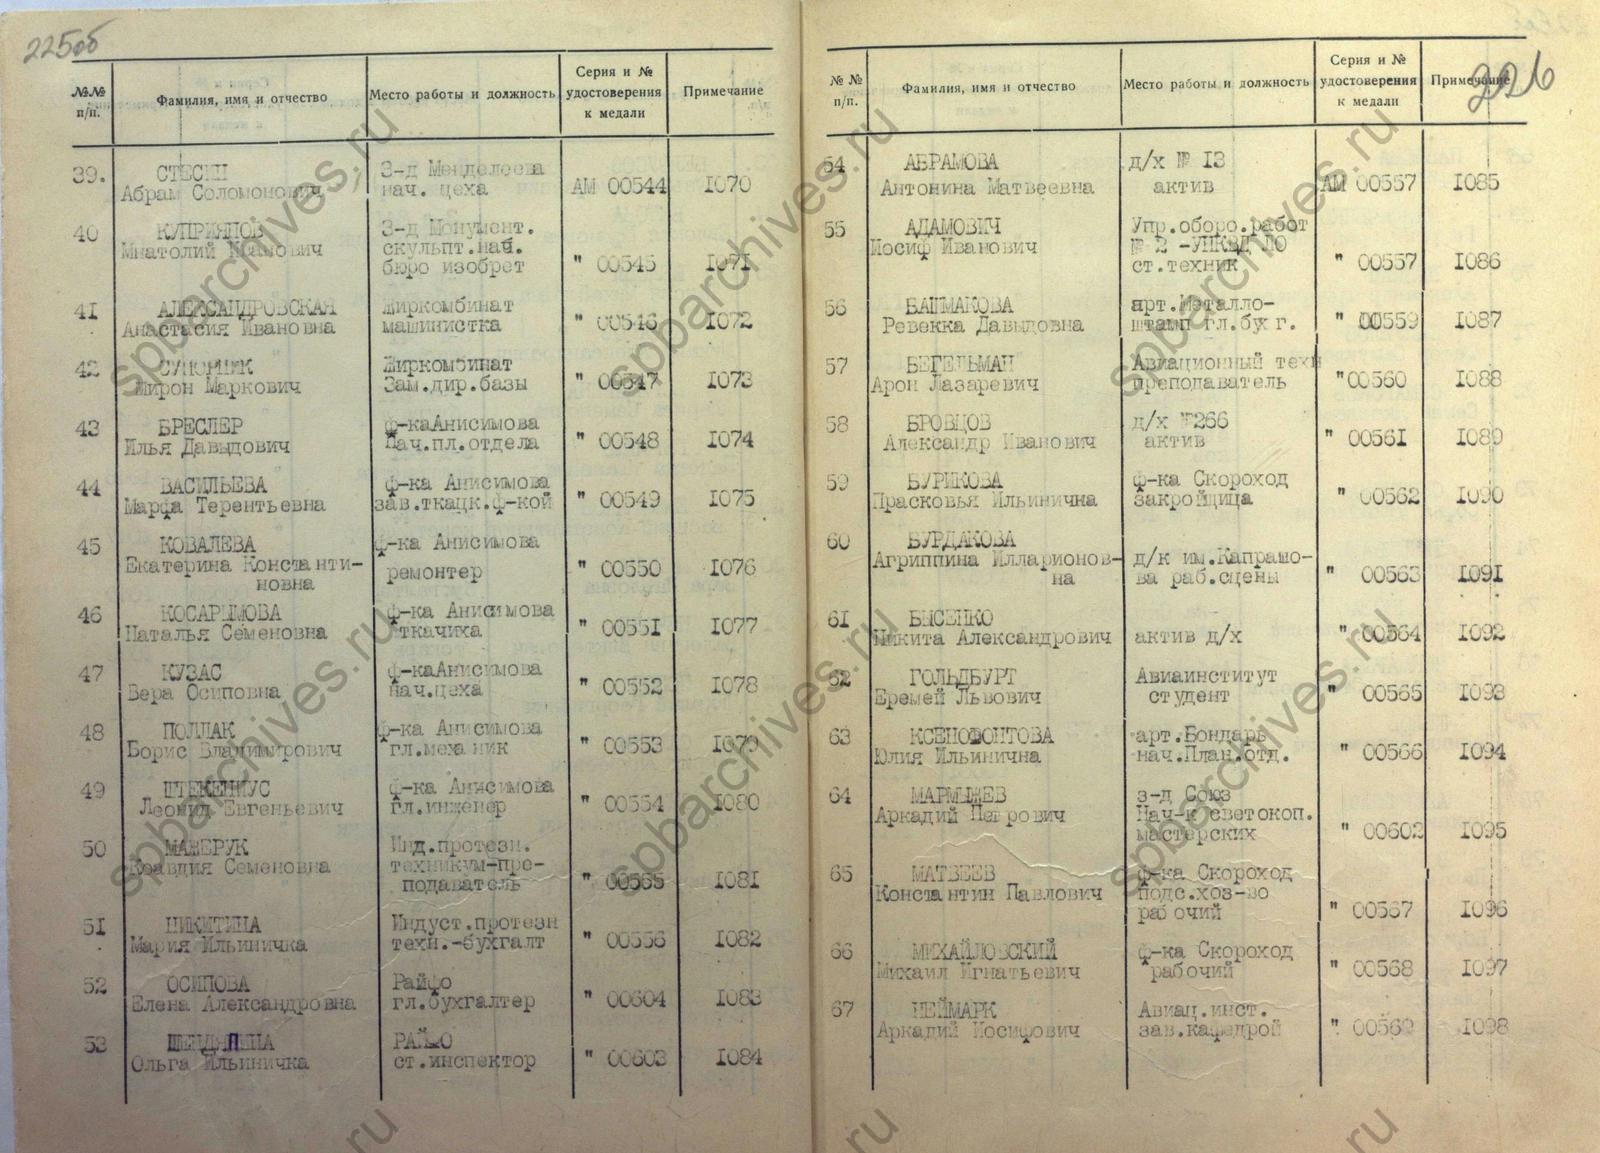 225об
№№ п/п.
Фамилия, имя и отчество
Место работы и должность
Серия и № удостоверения к медали
Примечание
39. СТЕСИН З-д Менделеева
Абрам Соломонович нач. цеха АМ 00544 I070
40 КУПРИЯНОВ З-д Монумент.
скульпт.нач.
бюро изобрет " 00545 I071
41 АЛЕКСАНДРОВСКАЯ Жиркомбинат
Анастасия Ивановна машинистка " 00546 I072
42 Жиркомбинат
Мирон Маркович Зам.дир.базы " 00547 I073
43 БРЕСЛЕР ф-каАнисимова
Илья Давыдович Нач.пл.отдела " 00548 I074
44 ВАСИЛЬЕВА ф-ка Анисимова
Марфа Терентьевна зав.ткацк.ф-кой " 00549 I075
45 КОВАЛЕВА ф-ка Анисимова
Екатерина Константи-
новна ремонтер " 00550 I076
46 КОСАРЫМОВА ф-ка Анисимова
Наталья Семеновна ткачиха " 0055I I077
47 КУЗАС ф-каАнисимова
Вера Осиповна нач.цеха " 00552 I078
48 ПОЛЛАК ф-ка Анисимова
Борис Владимирович гл.механик " 00553 I079
49 ШТЕКЕНИУС ф-ка Анисимова
Леонид Евгеньевич гл.инженер " 00554 I080
50 Инд.протезн.
Клавдия Семеновна техникум-пре-
подаватель " 00565 I08I
5I НИКИТИНА Индуст.протезн
Мария Ильиничка техн.-бухгалт " 00556 I082
52 ОСИПОВА Райфо
Елена Александровна гл.бухгалтер " 00604 I083
53 РАЙФО
Ольга Ильиничка ст.инспектор " 00603 I084
226
№ № п/п.
Фамилия, имя и отчество
Место работы и должность
Серия и № удостоверения к медали
Примечание
54 АБРАМОВА д/х № I3
Антонина Матвеевна актив АМ 00557 I085
55 АДАМОВИЧ Упр.оборо.работ
Иосиф Иванович № 2 -УНКВД ЛО
ст.техник " 00557 I086
56 БАШМАКОВА арт.Металло-
Ревекка Давыдовна штамп гл.бухг. " 00559 I087
57 БЕГЕЛЬМАН Авиационный техн
Арон Лазаревич преподаватель "00560 I088
58 БРОВЦОВ д/х №266
Александр Иванович актив " 0056I I089
59 БУРИКОВА ф-ка Скороход
Прасковья Ильинична закройщица " 00562 I090
60 БУРДАКОВА
Агриппина Илларионов-
на д/к им.Капрано-
ва раб.сцены " 00563 I09I
6I БЫСЕНКО
Никита Александрович актив д/х " 00564 I092
62 ГОЛЬДБУРТ Авиаинститут
Еремей Львович студент " 00565 I093
63 КСЕНОФОНТОВА арт.Бондарь
Юлия Ильинична нач.План.отд. " 00566 I094
64 МАРМЫШЕВ з-д Союз
Аркадий Петрович Нач-к светокоп.
мастерских " 00602 I095
65 МАТВЕЕВ ф-ка Скороход
Константин Павлович подс.хоз-во
рабочий " 00567 I096
66 МИХАЙЛОВСКИЙ ф-ка Скороход
Михаил Игнатьевич рабочий " 00568 I097
67 НЕЙМАРК Авиац.инст.
Аркадий Иосифович зав.кафедрой " 00569 I098
spbarchives.ru